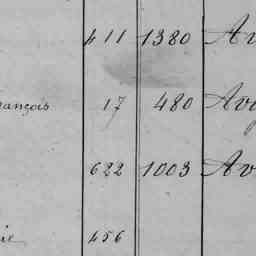 411 1380 Av
rançois 17 480 Av
622 1003 Av
ie 456